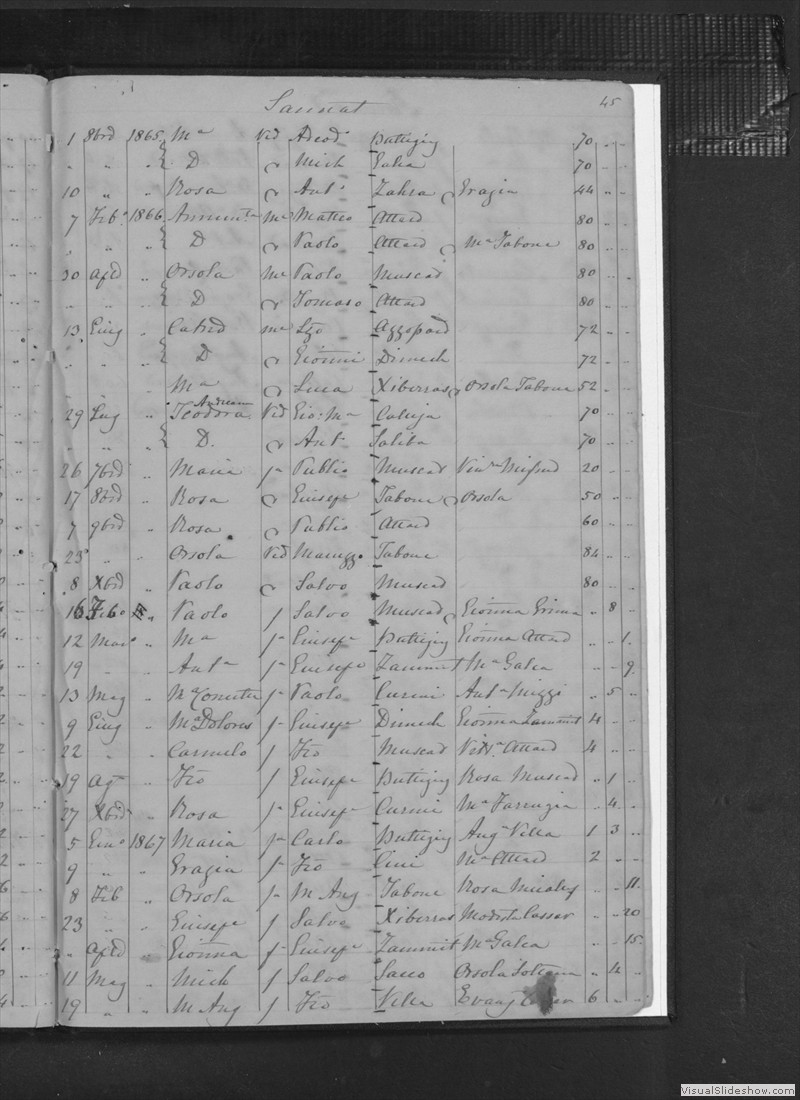 Sannat 45
1 8brd 1865 Ma Vid Adeod Buttigieg 70 .. ..
" " " D " Mich Galea 70 .. ..
10 " " Rosa " Anto Zahra Grazia 44 .. ..
7 Feb 1866 Annunta Me Matteo Attard 80
" " " D " Paolo Attard Ma Tabone 80 .. ..
30 Aple " Orsola Me Paolo Muscad 80
" " " D " Tomaso Attard 80 .. ..
13 Giug " Me Lzo Azzopard 72 .. ..
" " " D " Gionni Dimech 72 .. ..
Ma " Luca Xiberras Orsola Tabone 52 .. ..
Andreana
29 Lug " Teodora Vid Gio: Ma Caluja 70 .. ..
" " " D. " Ant Saliba 70 .. ..
26 7brd " Maria f Publio Muscad 20 .. ..
17 8brd " Rosa " Giusepe Tabone Orsola 50 .. ..
7 9brd " Rosa " Publio Attard 60 .. ..
23 " " Orsola Vid Tabone 84 .. ..
8 Xbrd " Paolo " Salvo Muscad 80 .. ..
16 Feb " Paolo f Salvo Muscad Gionna Grima " 8 ..
12 Mar " Ma f Giusepe Buttigieg Gionna Attard " .. 1.
19 " " Anta f Giusepe Zammit Ma Galea " .. 9.
13 Mag " f Paolo Curmi Anta Mizzi " 5 ..
9 Giug " Ma Dolores f Giusepe Dimech Gionna Zammit 4 .. ..
22 " " Carmelo f Fco Muscad Attard 4 .. ..
19 Ag " Fco f Giusepe Buttigieg Rosa Muscad " 1 ..
27 Xbrd " Rosa f Giusepe Curmi Ma Farrugia " 4 ..
5 Gino 1867 Maria f Carlo Buttigieg Anga Vella 1 3 ..
9 " " Grazia f Fco Cini Ma Attard 2 .. ..
8 Feb " Orsola f M Ang Tabone Rosa Micalef " .. 11.
23 " " Giusepe f Salvo Xiberras " .. 20
" Apld " Gionna f Giusepe Zammit Ma Galea " .. 15.
11 Mag " Mich f Salvo Sacco Orsola " 4 ..
19 " " M Ang f Fco Vella 6 .. ..
VisualSlideshow.com